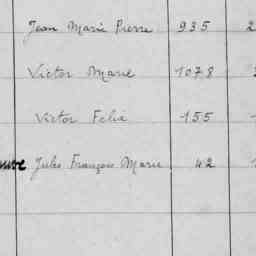 Jean Marie Pierre 935 2
Victor Marie 1078
Victor Felix 155
Jules François Marie 42